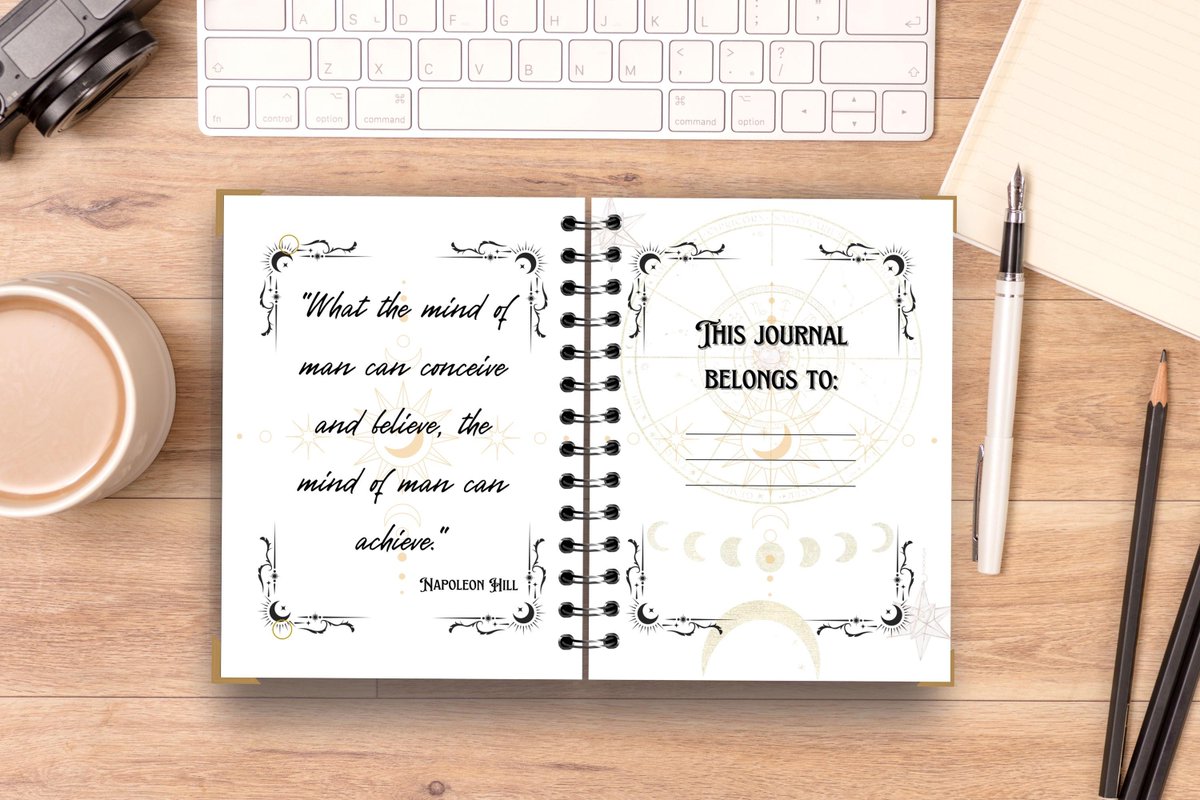 A S L D F G H J K L : ; " '
Z X C V B N M < , > . ? /
fn control option command command option
"What the mind of
man can conceive
and believe, the
mind of man can
achieve."
Napoleon Hill
This journal
belongs to: